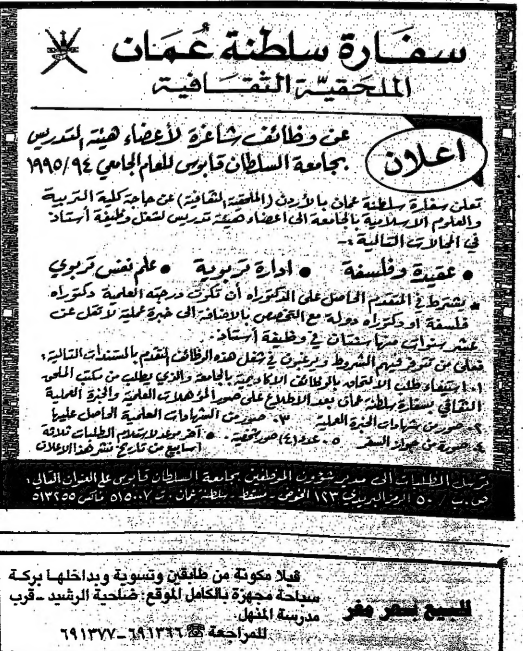 سفارة سلطنة عُمان
الملحقيّة الثقافية
اعلان
عن وظائف شاغرة لأعضاء هيئة التدريس
بجامعة السلطان قابوس للعام الجامعي ٩٤/١٩٩٥
تعلن سفارة سلطنة عمان بالأردن (الملحقية الثقافية) عن حاجة كلية التربية
والعلوم الاسلامية بالجامعة الى اعضاء هيئة تدريس لشغل وظيفة أستاذ
في المجالات التالية :-
• عقيدة وفلسفة • ادارة تربوية • علم نفس تربوي
• يشترط في المتقدم الحاصل على الدكتوراه أن تكون درجته العلمية دكتوراه
فلسفة أو دكتوراه دولة مع التخصص بالاضافة الى خبرة عملية لا تقل عن
عشر سنوات منها سنتان في وظيفة أستاذ.
فعلى من تتوفر فيهم الشروط ويرغبون في شغل هذه الوظائف التقدم بالمستندات التالية:
١- استيفاء طلب الالتحاق بالوظائف الاكاديمية بالجامعة والذي يطلب من مكتب الملحق
الثقافي بسفارة سلطنة عمان بعد الاطلاع على صور المؤهلات العلمية والخبرة العملية
٢- صور من شهادات الخبرة العملية ٣- صور من الشهادات العلمية الحاصل عليها
٤- صورة من جواز السفر ٥- عدد (٤) صور شخصية ٥- آخر موعد لاستلام الطلبات ثلاثة
أسابيع من تاريخ نشر هذا الاعلان
ترسل الطلبات الى مدير شؤون الموظفين بجامعة السلطان قابوس على العنوان التالي:
ص.ب / ٥٠ الرمز البريدي ١٢٣ الخوض - مسقط - سلطنة عمان - ت ٥١٥٠٠٧ فاكس ٥١٣٢٥٥
للبيع بسعر مغر
فيلا مكونة من طابقين وتسوية وبداخلها بركة
سباحة مجهزة بالكامل الموقع: ضاحية الرشيد - قرب
مدرسة المنهل.
للمراجعة ☎ ٦٩١٣٦٦-٦٩١٣٧٧